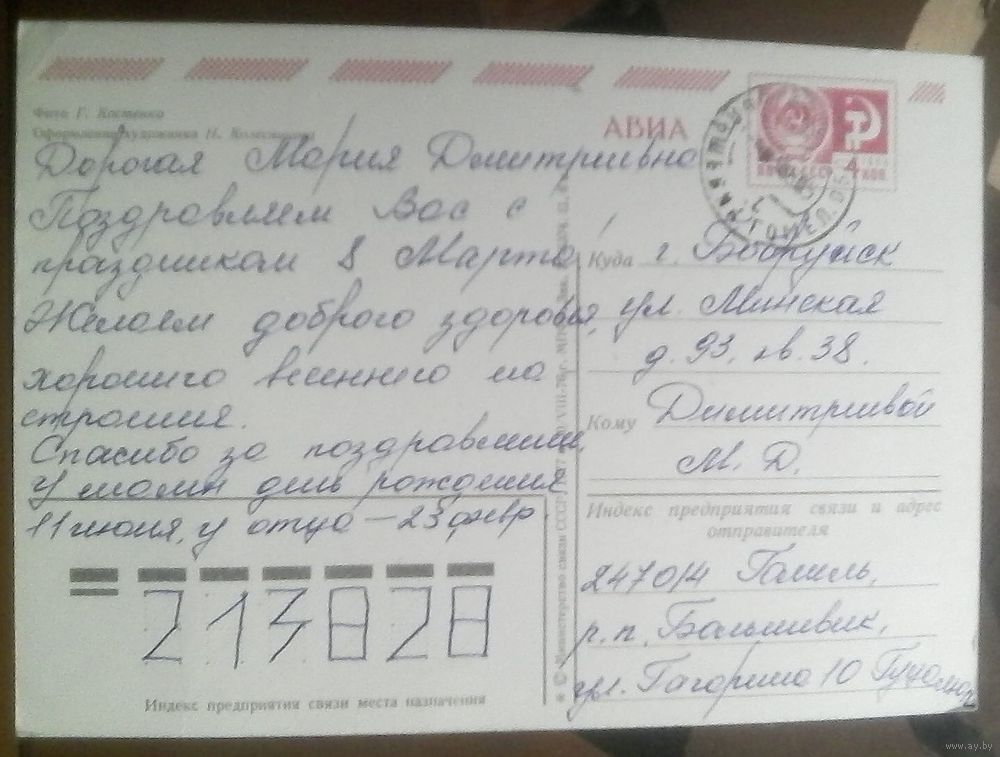 Фото Г. Костенко
Оформление художника Н. Колесникова
АВИА
Дорогая Мария Дмитриевна
Поздравляем Вас с
праздником 8 Марта!
Желаем доброго здоровья,
хорошего весеннего на
строения.
Спасибо за поздравления,
у мамы день рождения
11 июня, у отца – 23 февр
213828
Индекс предприятия связи места назначения
Куда г. Бобруйск
ул. Минская
д. 93. кв. 38.
Кому Димитриевой
М. Д.
Индекс предприятия связи и адрес
отправителя
247014 Гомель,
р.п. Большевик,
ул. Гагарина 10
www.ay.by